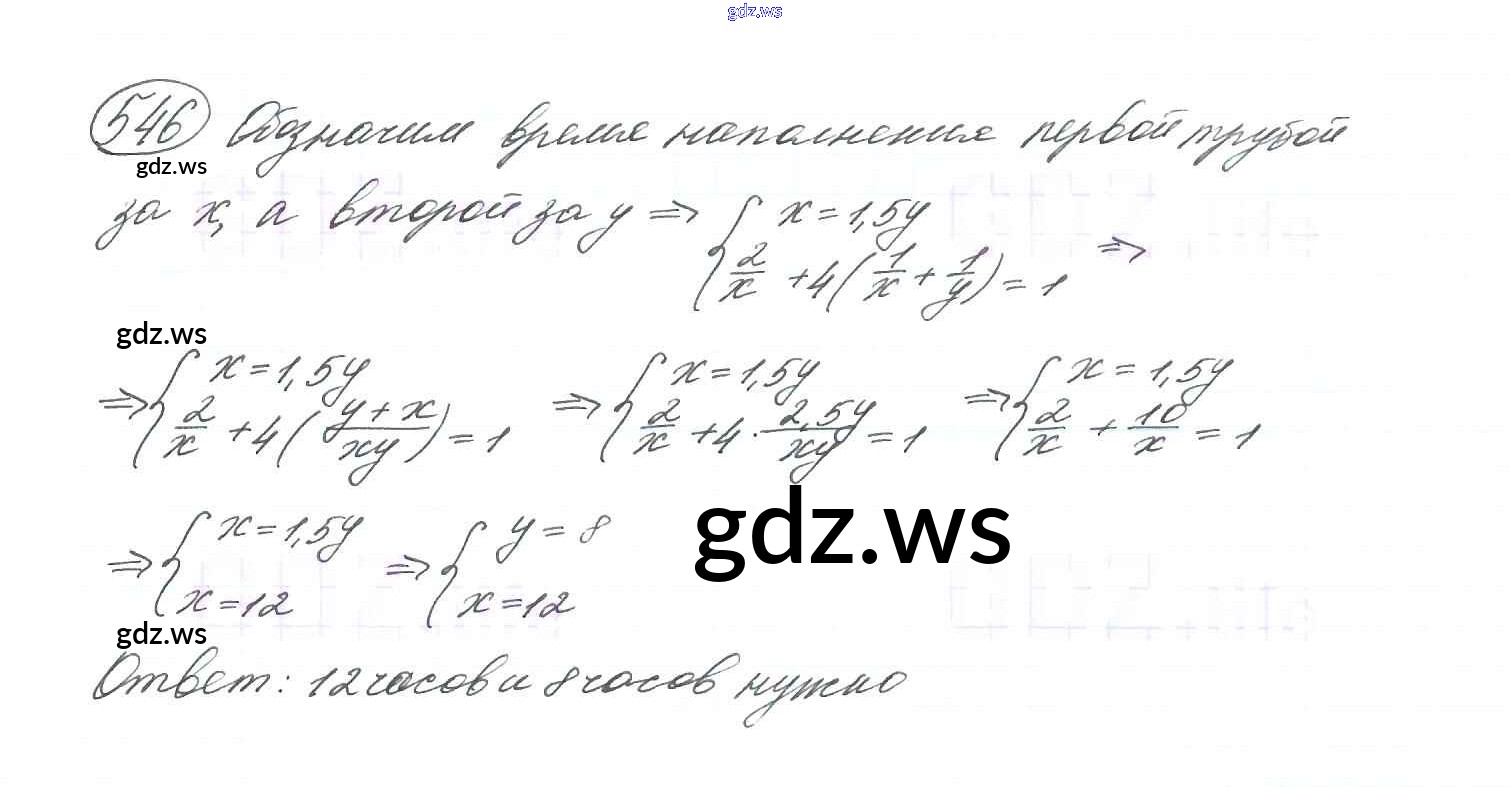 gdz.ws
546 Обозначим время наполнения первой трубой
gdz.ws
за x, а второй за y ⇒ { x = 1,5y
2/x + 4(1/x + 1/y) = 1 ⇒
gdz.ws
⇒ { x = 1,5y ⇒ { x = 1,5y ⇒ { x = 1,5y
2/x + 4((y + x)/xy) = 1 2/x + 4 · 2,5y/xy = 1 2/x + 10/x = 1
gdz.ws
⇒ { x = 1,5y ⇒ { y = 8
x = 12 x = 12
gdz.ws
Ответ: 12 часов и 8 часов нужно